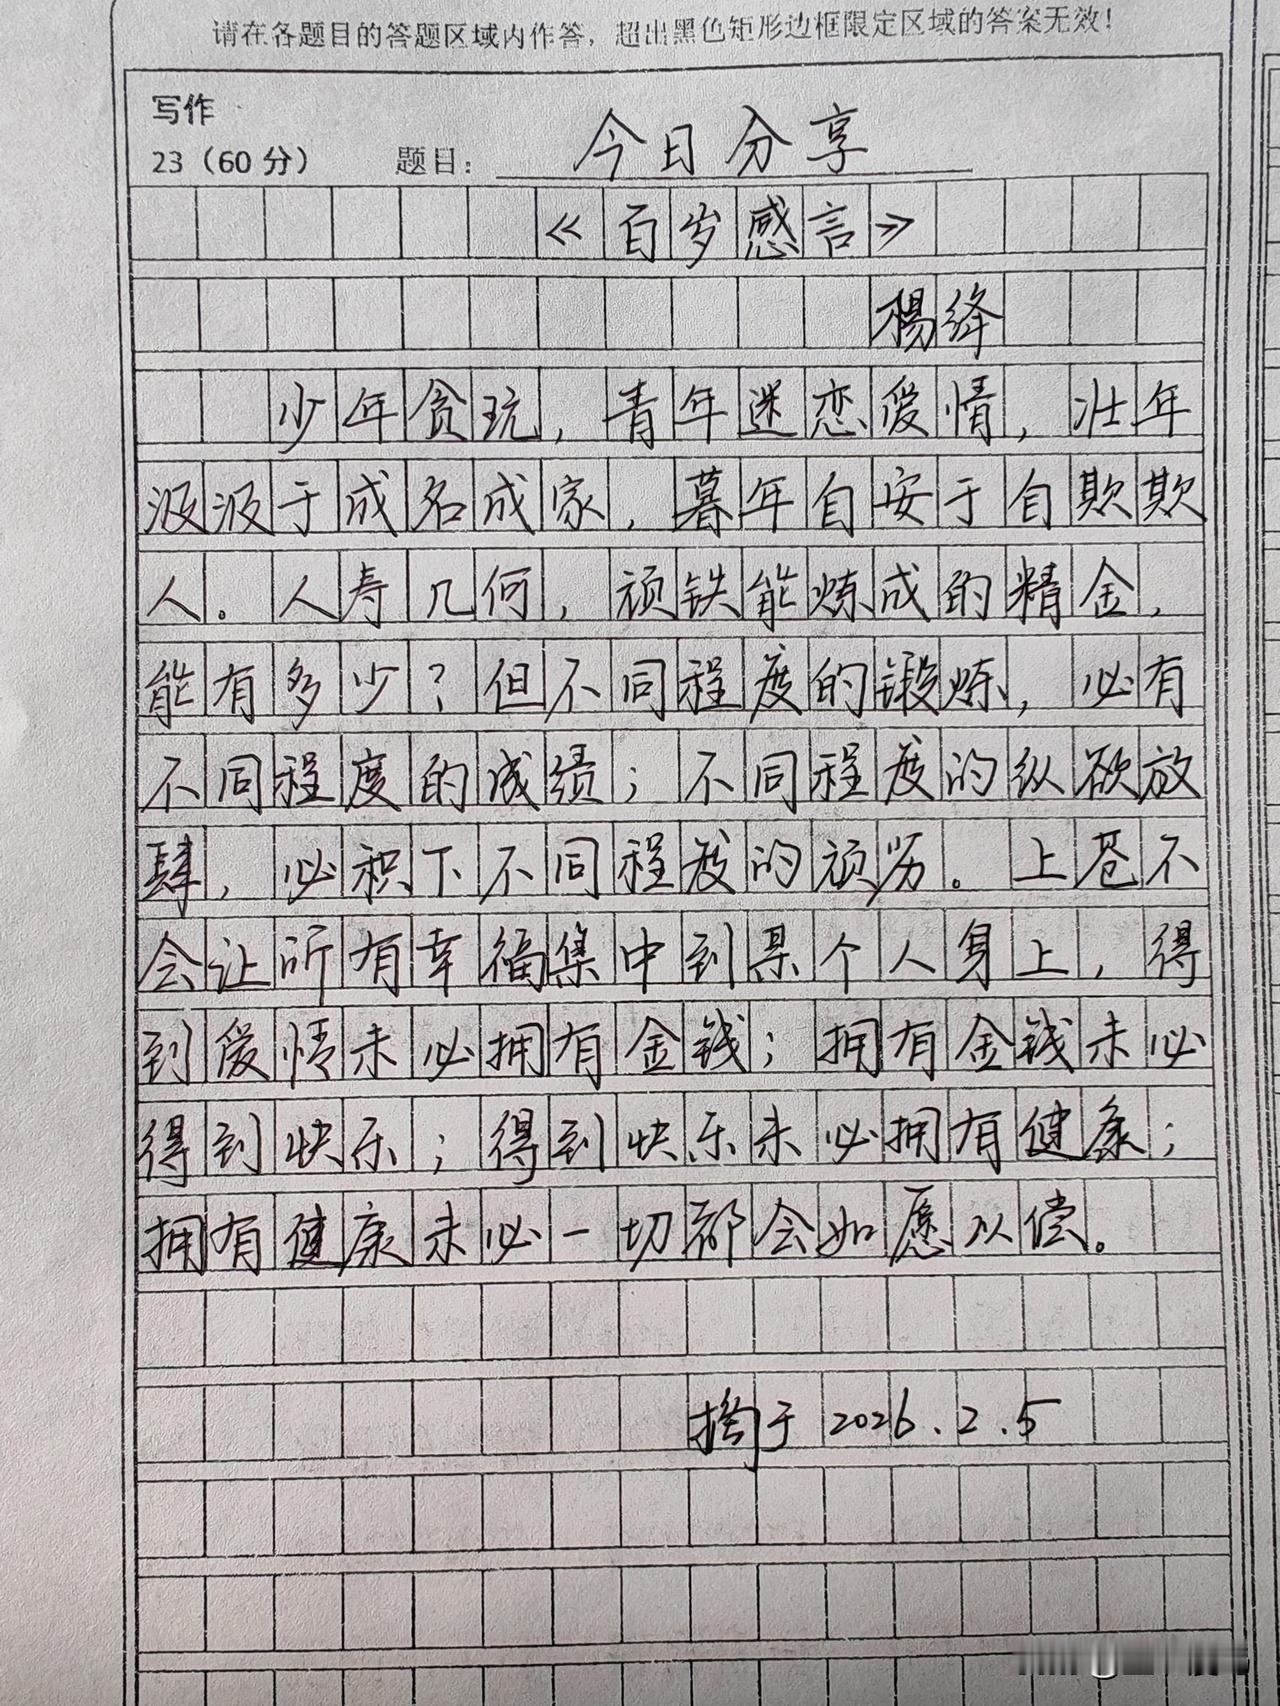 请在各题目的答题区域内作答，超出黑色矩形边框限定区域的答案无效！
写作
23（60分） 题目：今日分享
《百岁感言》
杨绛
少年贪玩，青年迷恋爱情，壮年
汲汲于成名成家，暮年自安于自欺欺
人。人寿几何，顽铁能炼成的精金，
能有多少？但不同程度的锻炼，必有
不同程度的成绩；不同程度的纵欲放
肆，必积下不同程度的顽劣。上苍不
会让所有幸福集中到某个人身上，得
到爱情未必拥有金钱；拥有金钱未必
得到快乐；得到快乐未必拥有健康；
拥有健康未必一切都会如愿以偿。
摘于2026.2.5